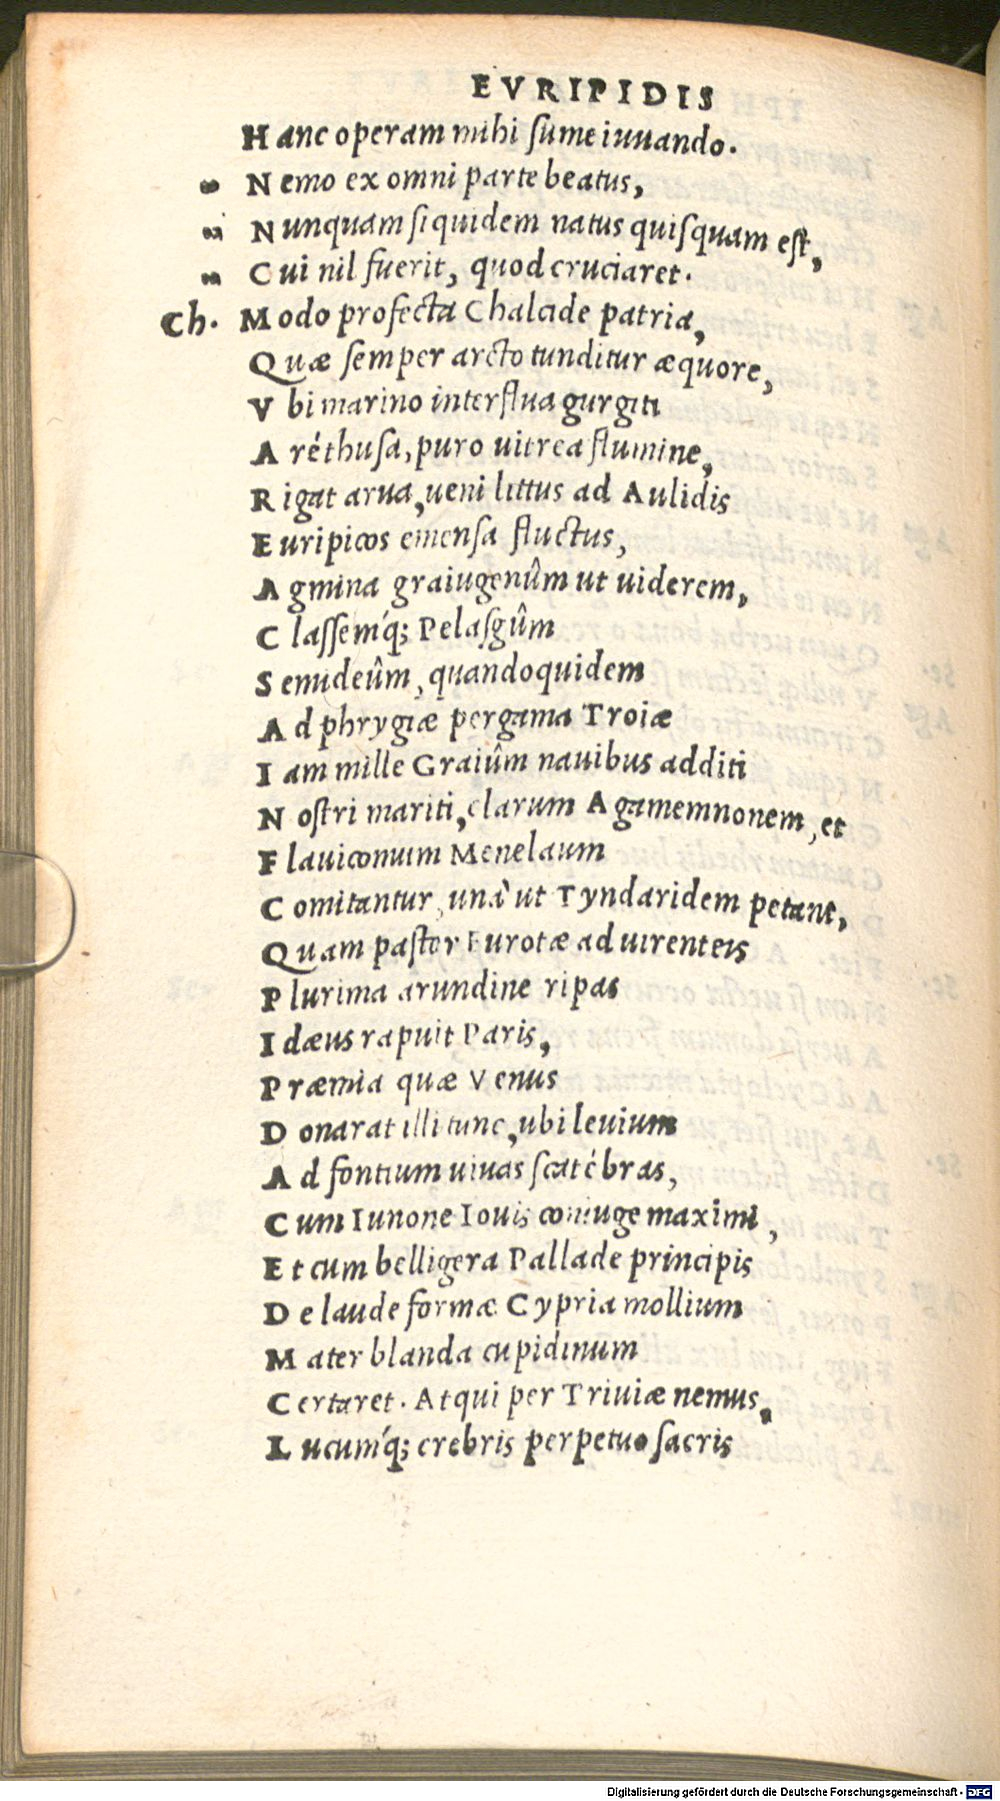 EVRIPIDIS
Hanc operam mihi sume iuuando.
„ Nemo ex omni parte beatus,
„ Nunquam siquidem natus quisquam est,
„ Cui nil fuerit, quod cruciaret.
Ch. Modo profecta Chalcide patria,
Quæ semper arcto tunditur æquore,
Vbi marino interflua gurgiti
Aréthusa, puro uitrea flumine,
Rigat arua, ueni littus ad Aulidis
Euripicos emensa fluctus,
Agmina graiugenûm ut uiderem,
Classemq́; Pelasgûm
Semideûm, quandoquidem
Ad phrygiæ pergama Troiæ
Iam mille Graiûm nauibus additi
Nostri mariti, clarum Agamemnonem, et
Flauicomum Menelaum
Comitantur, unà ut Tyndaridem petant,
Quam pastor Eurotæ ad uirenteis
Plurima arundine ripas
Idæus rapuit Paris,
Præmia quæ Venus
Donarat illi tunc, ubi leuium
Ad fontium uiuas scatébras,
Cum Iunone Iouis coniuge maximi,
Et cum belligera Pallade principis
De laude formæ Cypria mollium
Mater blanda cupidinum
Certaret. Atqui per Triuiæ nemus,
Lucumq́; crebris perpetuo sacris
Digitalisierung gefördert durch die Deutsche Forschungsgemeinschaft - DFG